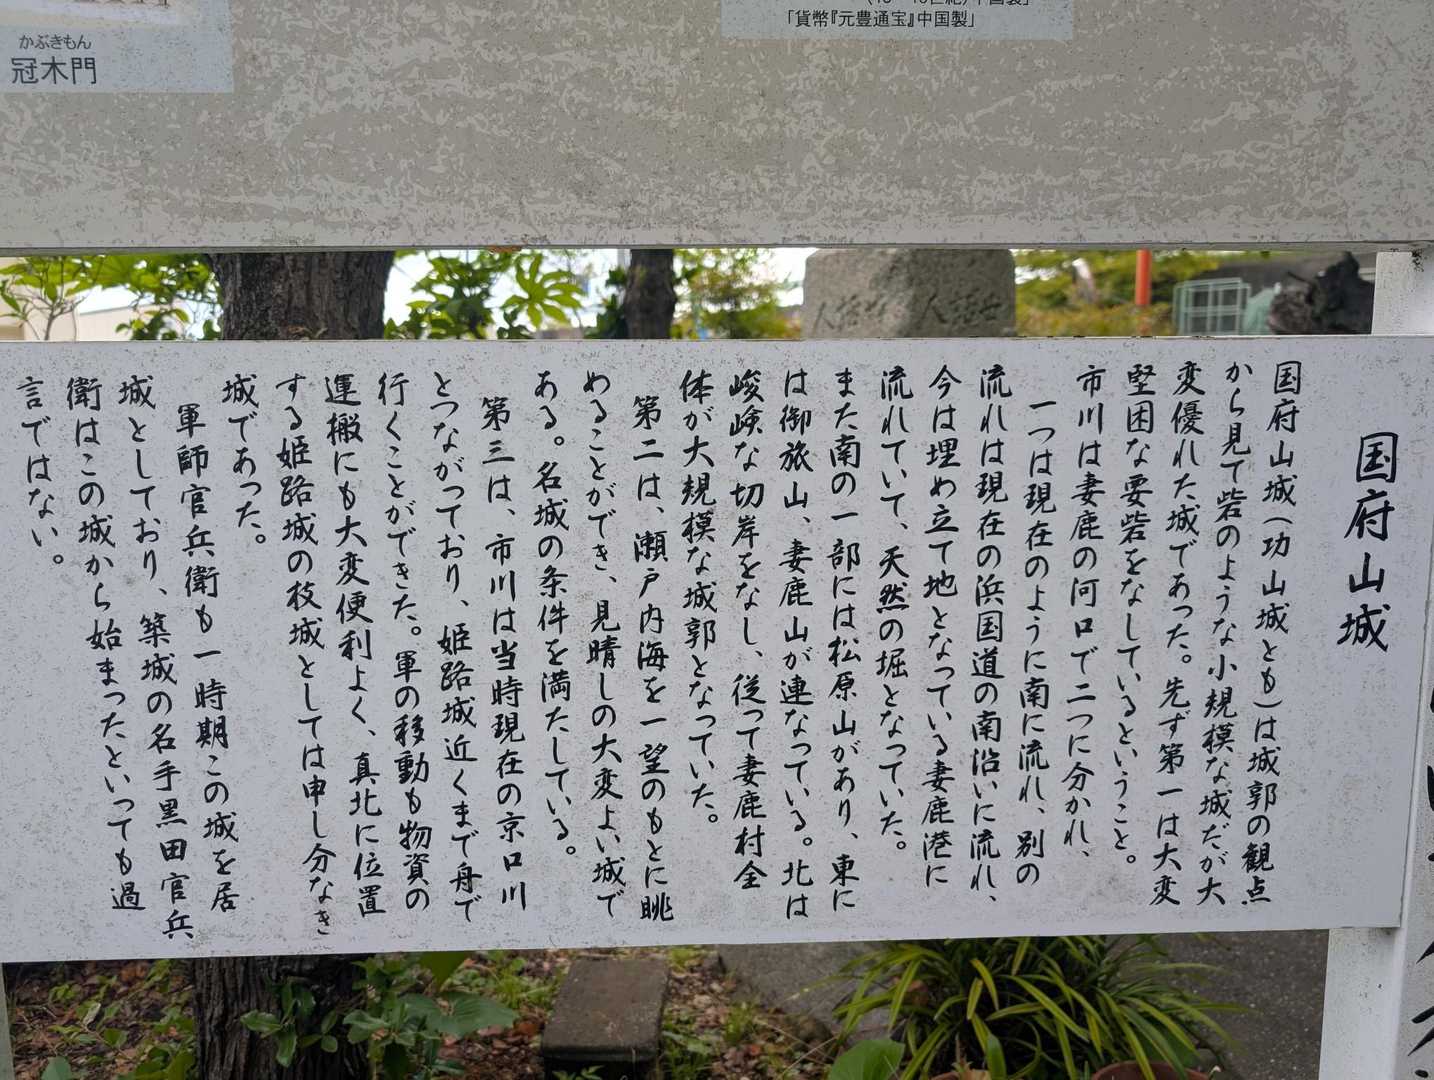 かぶきもん
冠木門
「貨幣『元豊通宝』中国製」
国府山城
国府山城(功山城とも)は城郭の観点
から見て砦のような小規模な城だが大
変優れた城であった。先ず第一は大変
堅固な要砦をなしているということ。
市川は妻鹿の河口で二つに分かれ、
一つは現在のように南に流れ、別の
流れは現在の浜国道の南沿いに流れ、
今は埋め立て地となっている妻鹿港に
流れていて、天然の堀となっていた。
また南の一部には松原山があり、東に
は御旅山、妻鹿山が連なっている。北は
峻険な切岸をなし、従って妻鹿村全
体が大規模な城郭となっていた。
第二は、瀬戸内海を一望のもとに眺
めることができ、見晴しの大変よい城で
ある。名城の条件を満たしている。
第三は、市川は当時現在の京口川
とつながっており、姫路城近くまで舟で
行くことができた。軍の移動も物資の
運搬にも大変便利よく、真北に位置
する姫路城の枝城としては申し分なき
城であった。
軍師官兵衛も一時期この城を居
城としており、築城の名手黒田官兵
衛はこの城から始まったといっても過
言ではない。